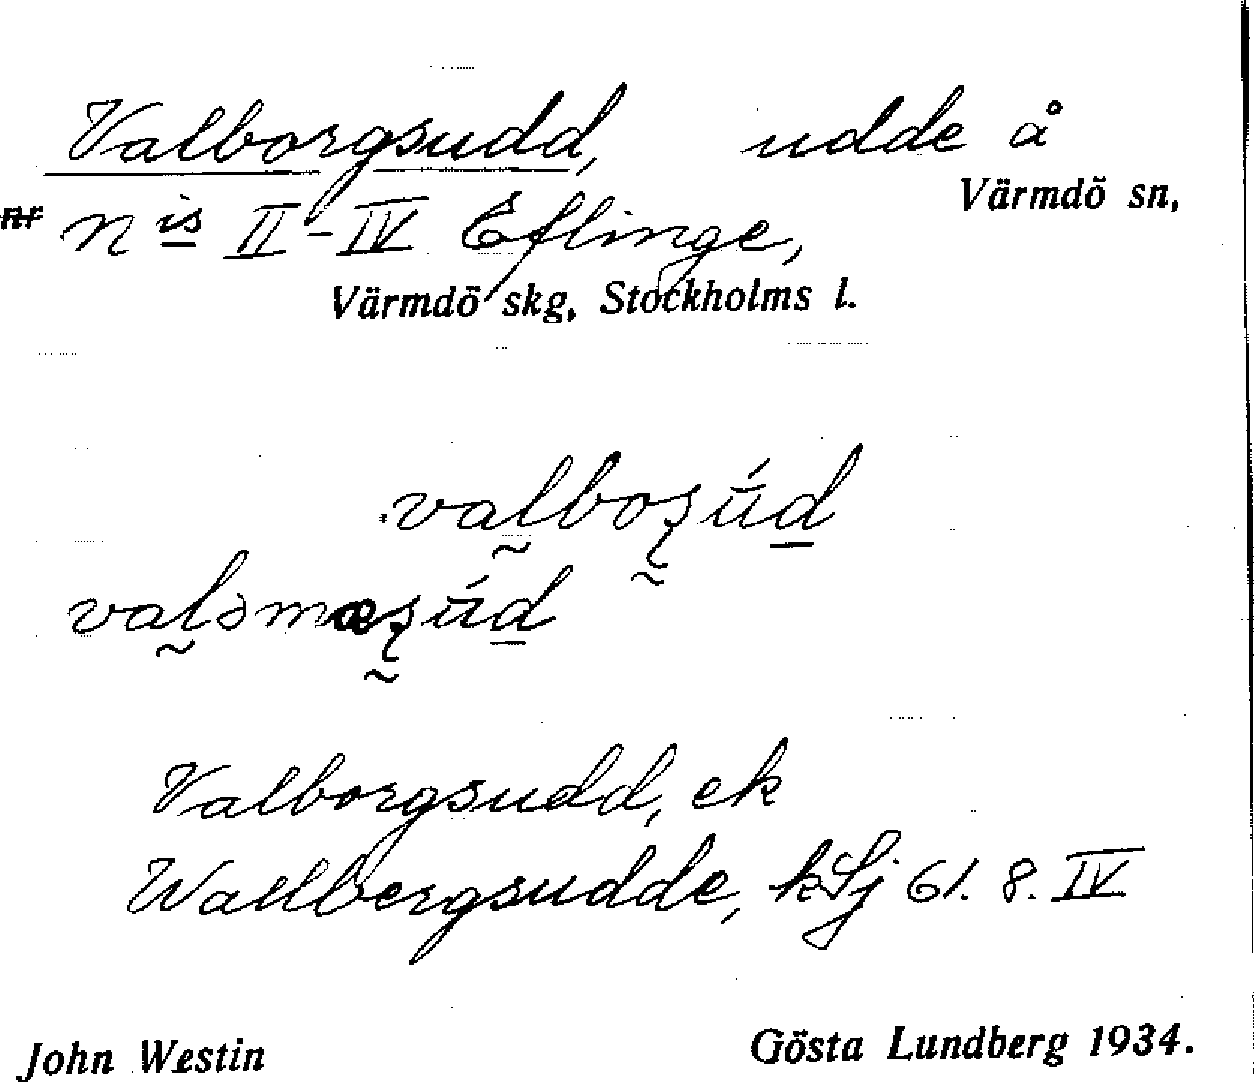 Valborgsudd, udde å
Värmdö sn,
nr n is II-IV Eflinge,
Värmdö skg, Stockholms l.
valboʒúd
valəmæʒúd
Valborgsudd, ek
Wallbergsudde, kSj 61. 8. IV
John Westin
Gösta Lundberg 1934.